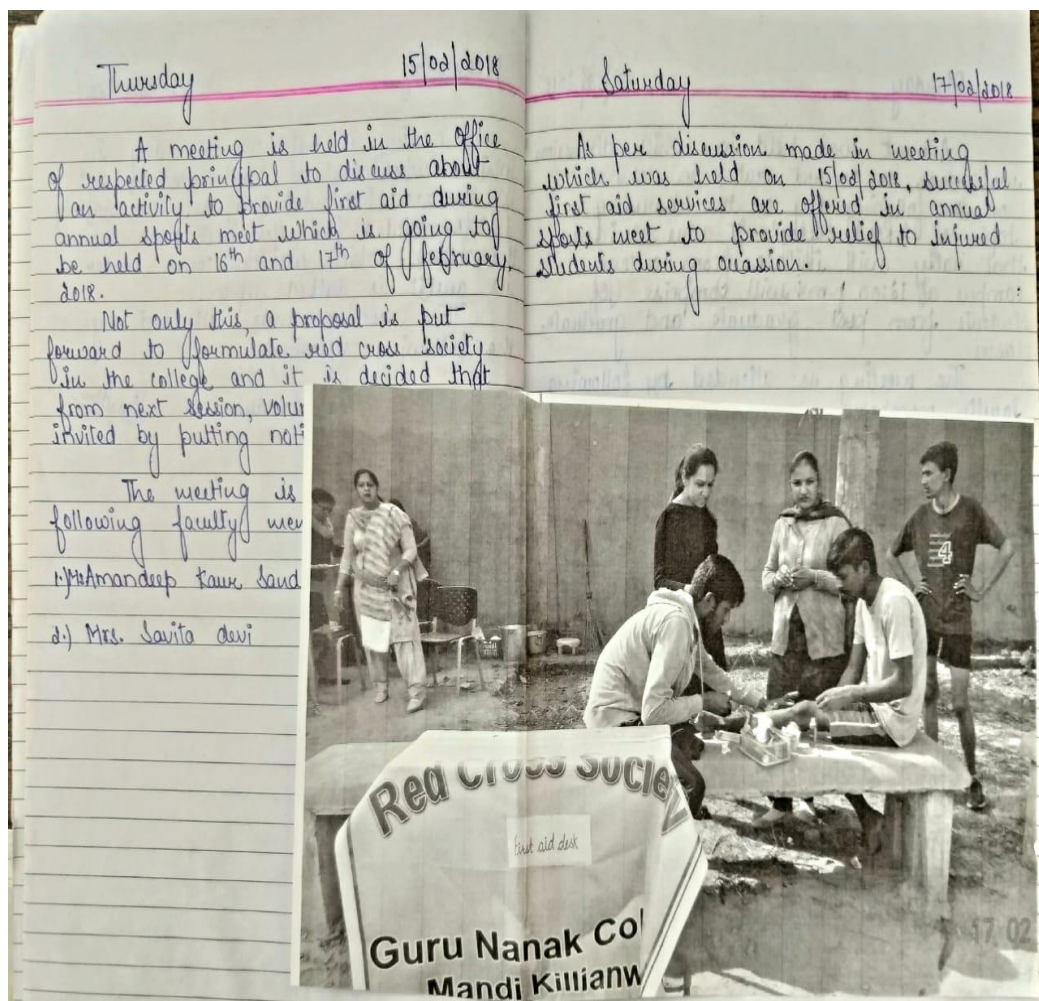 Thursday 15/02/2018
A meeting is held in the office
of respected principal to discuss about
an activity to provide first aid during
annual sports meet which is going to
be held on 16th and 17th of february,
2018.
Not only this, a proposal is put
forward to formulate red cross society
in the college and it is decided that
from next session,
invited by putting
The meeting is
following faculty
1.) Amandeep Kaur
2.) Mrs. Savita devi
Saturday 17/02/2018
As per discussion made in meeting
which was held on 15/02/2018, successful
first aid services are offered in annual
sports meet to provide relief to injured
students during occassion.
4
Red Cross Socie
first aid desk
Guru Nanak Col
Mandi Killianw
17 02